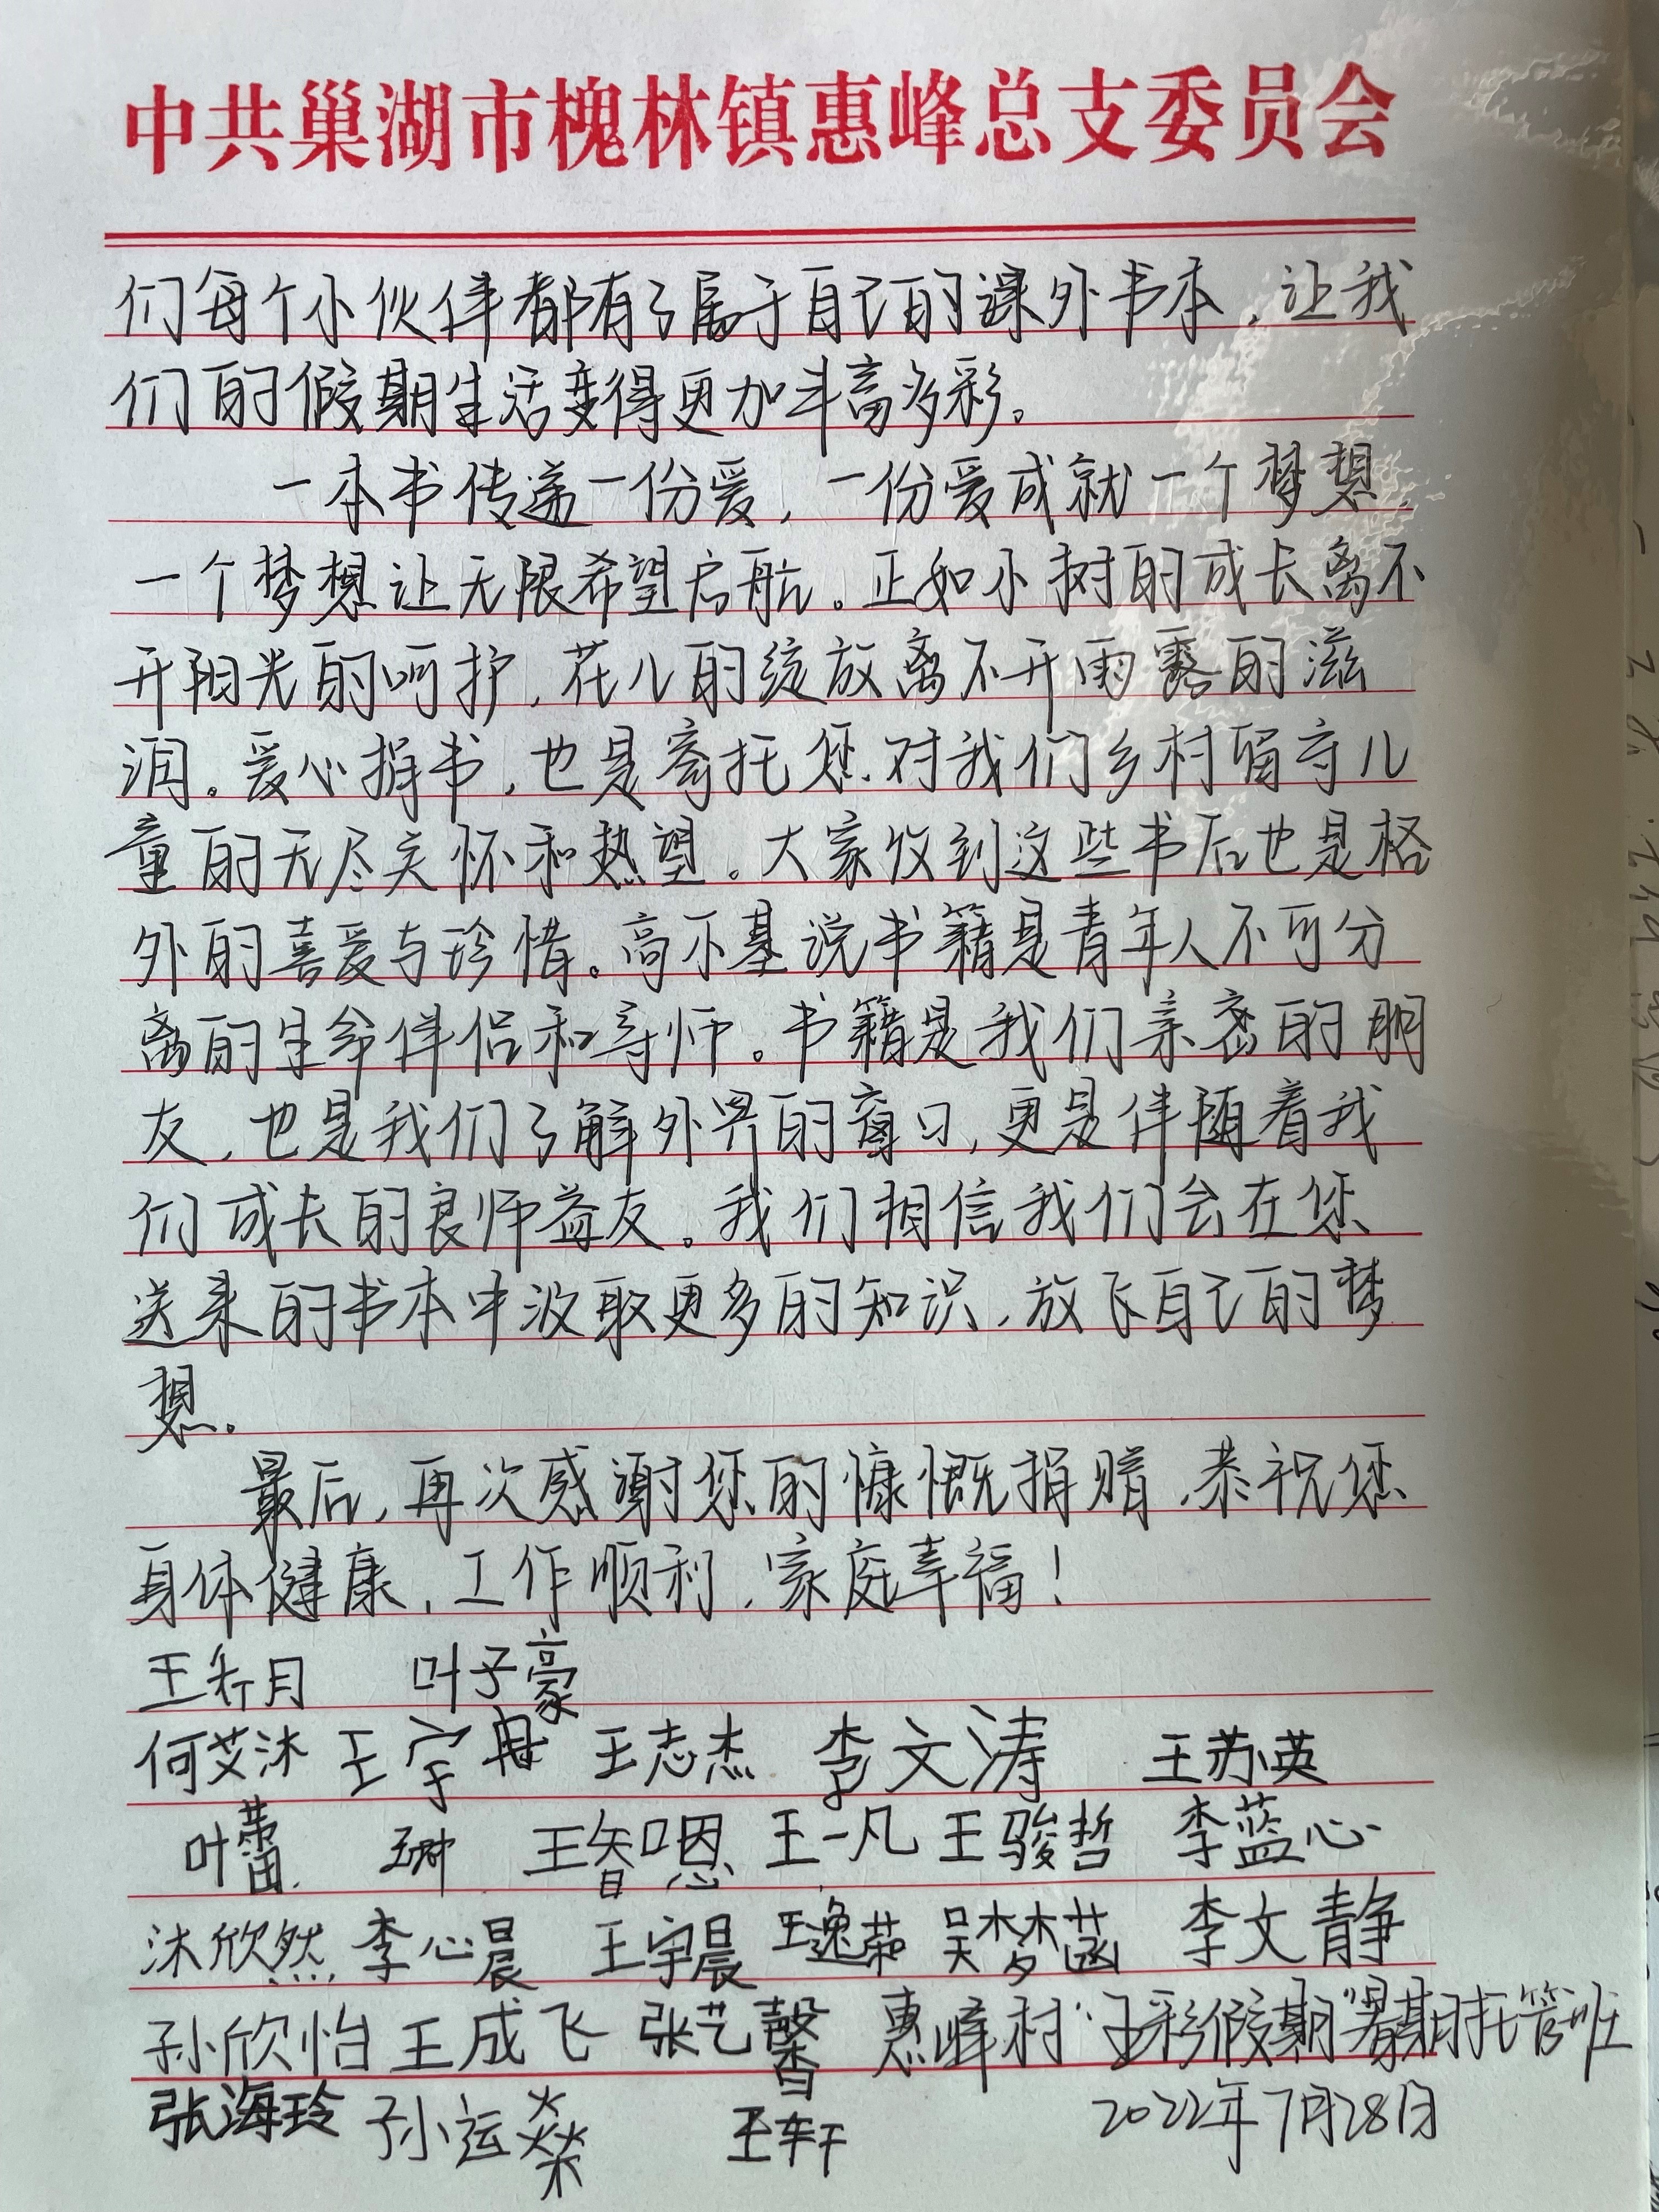 中共巢湖市槐林镇惠峰总支委员会
们每个小伙伴都有了属于自己的课外书本，让我
们的假期生活变得更加丰富多彩。
一本书传递一份爱，一份爱成就一个梦想，
一个梦想让无限希望启航。正如小树的成长离不
开阳光的呵护，花儿的绽放离不开雨露的滋
润。爱心捐书，也是寄托您对我们乡村留守儿
童的无尽关怀和热望。大家收到这些书后也是格
外的喜爱与珍惜。高尔基说书籍是青年人不可分
离的生命伴侣和导师。书籍是我们亲密的朋
友，也是我们了解外界的窗口，更是伴随着我
们成长的良师益友。我们相信我们会在您
送来的书本中汲取更多的知识，放飞自己的梦
想。
最后，再次感谢您的慷慨捐赠，恭祝您
身体健康，工作顺利，家庭幸福！
叶子豪
何艾沐 王宇冉 王志杰 李文涛 王苏英
叶蕾 王智恩 王一凡 王骏哲 李蓝心
沐欣然 李心晨 王宇晨 王逸茹 吴梦菡 李文静
孙欣怡 王成飞 张艺馨 惠峰村“七彩假期”暑期托管班
张海玲 孙运燊 王轩 2022年7月28日